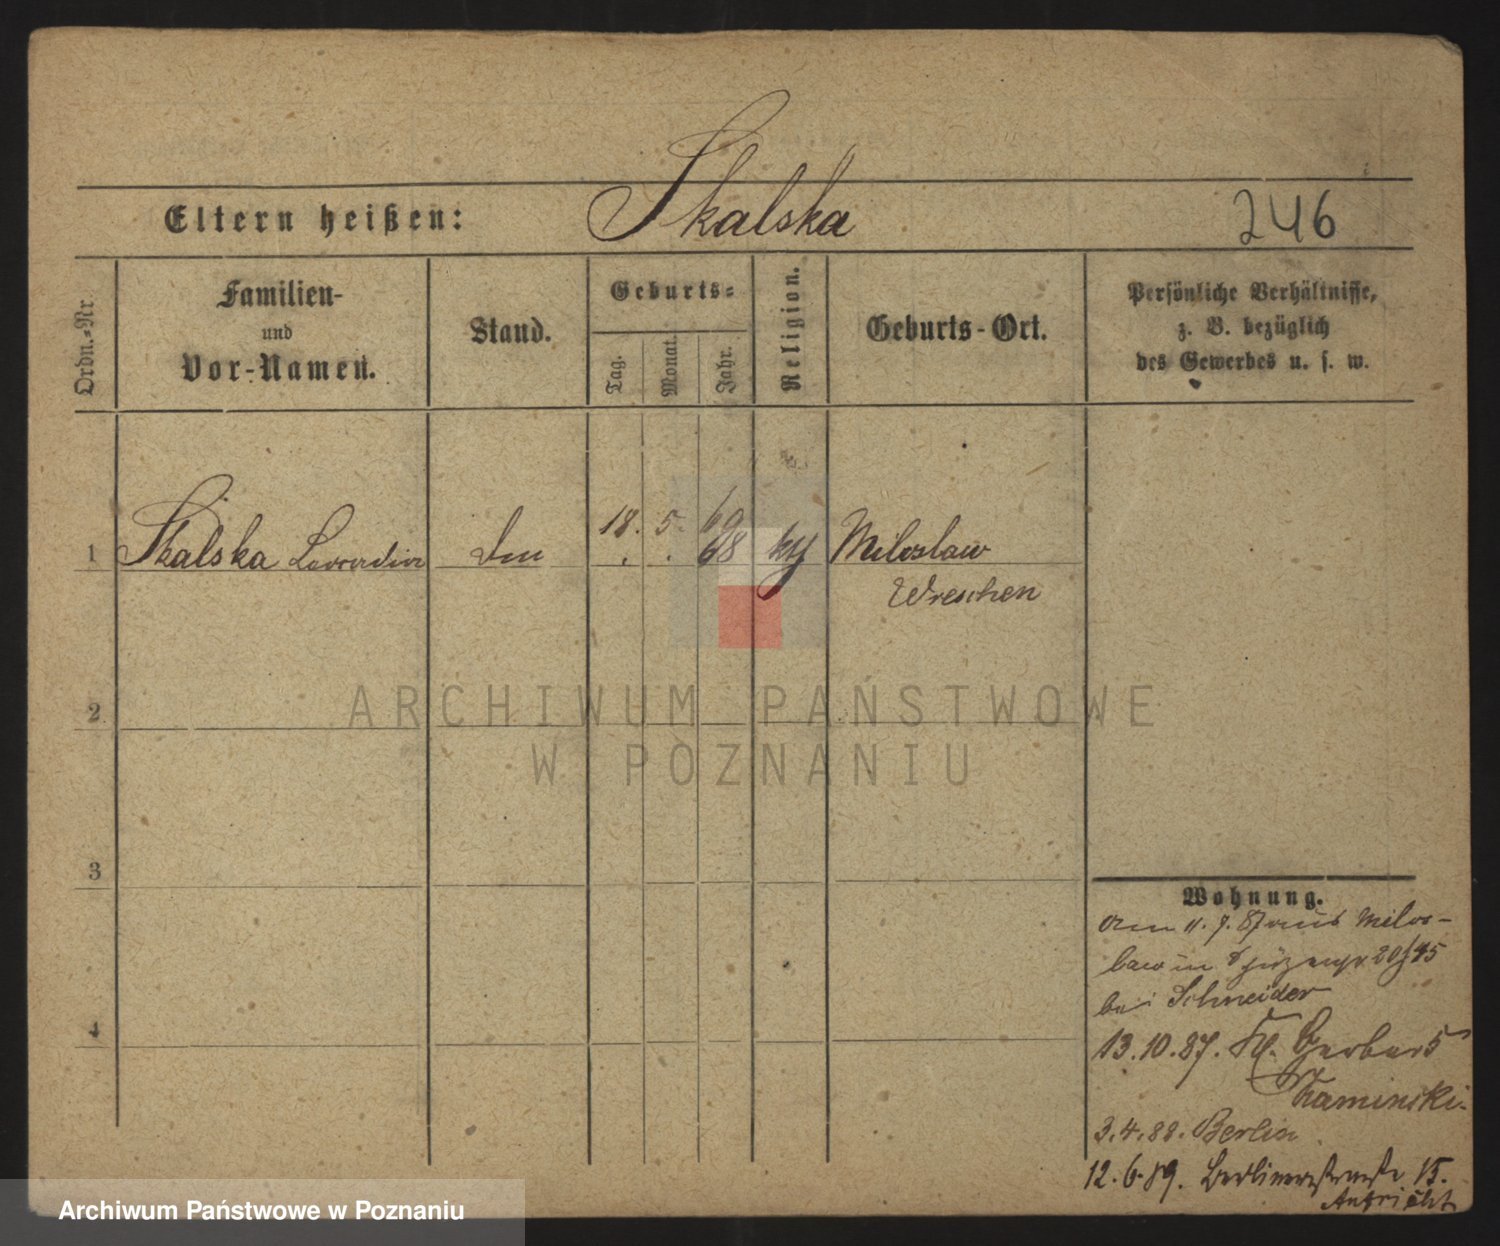 Eltern heißen: Skalska 246
Ordn.-Nr
Familien-
und
Vor-Namen.
Stand.
Geburts-
Tag.
Monat.
Jahr.
Religion.
Geburts-Ort.
Persönliche Verhältnisse,
z. B. bezüglich
des Gewerbes u. s. w.
69
1 Skalska Leocadia 18. 5. 68 Miloslaw
Wreschen
2
ARCHIWUM PAŃSTWOWE
W POZNANIU
3
Wohnung.
am 11. 7. 87 aus Milos-
law in 20/45
bei Schneider
4
13.10.87. Kl. Gerber 5
Kaminski.
3.4.88. Berlin
12.6.89. Berlinerstraße 15.
Aufricht
Archiwum Państwowe w Poznaniu